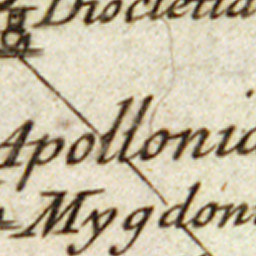 Diocletia
Apollonia
Mygdoni